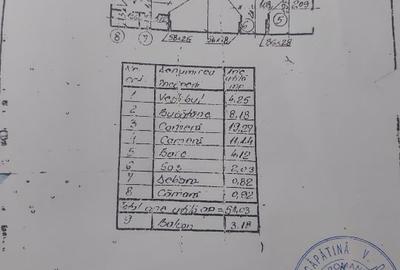 209
8
7
5
Nr. crt. Denumirea încăperii Arie utilă mp
1 Vestibul 4.25
2 Bucătărie 8,18
3 Cameră 19,27
4 Cameră 11.44
5 Baie 4,12
6 Sas 2,03
7 Debara 0,82
8 Cămară 0,92
Total arie utilă ap = 51,03
9 Balcon 3.18
CĂPĂȚINĂ V.